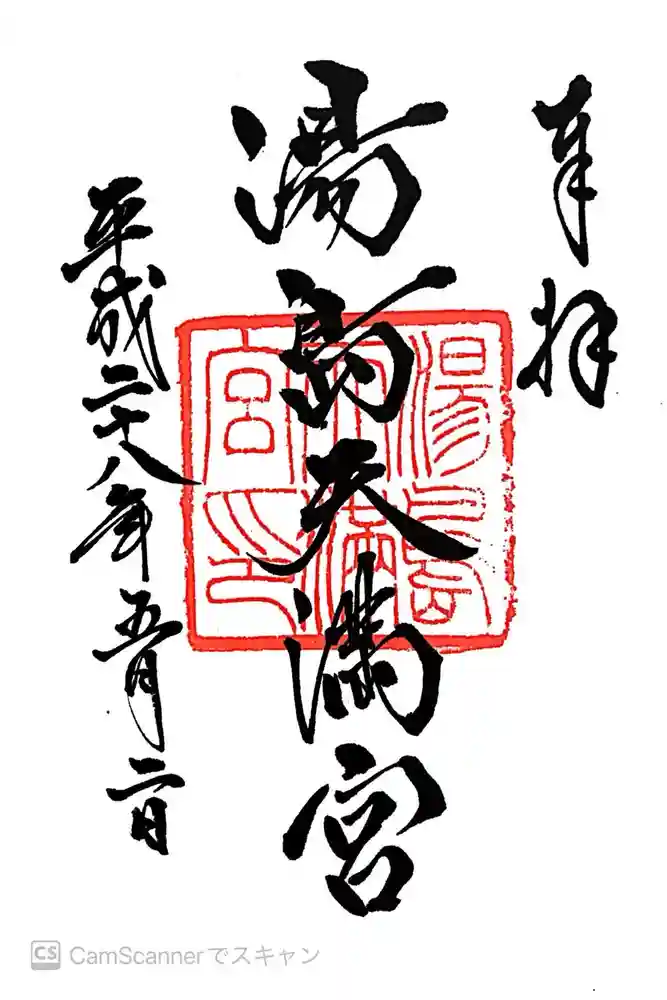 奉拝
湯島天満宮
湯島天満宮印
平成二十八年五月二日
CS CamScannerでスキャン